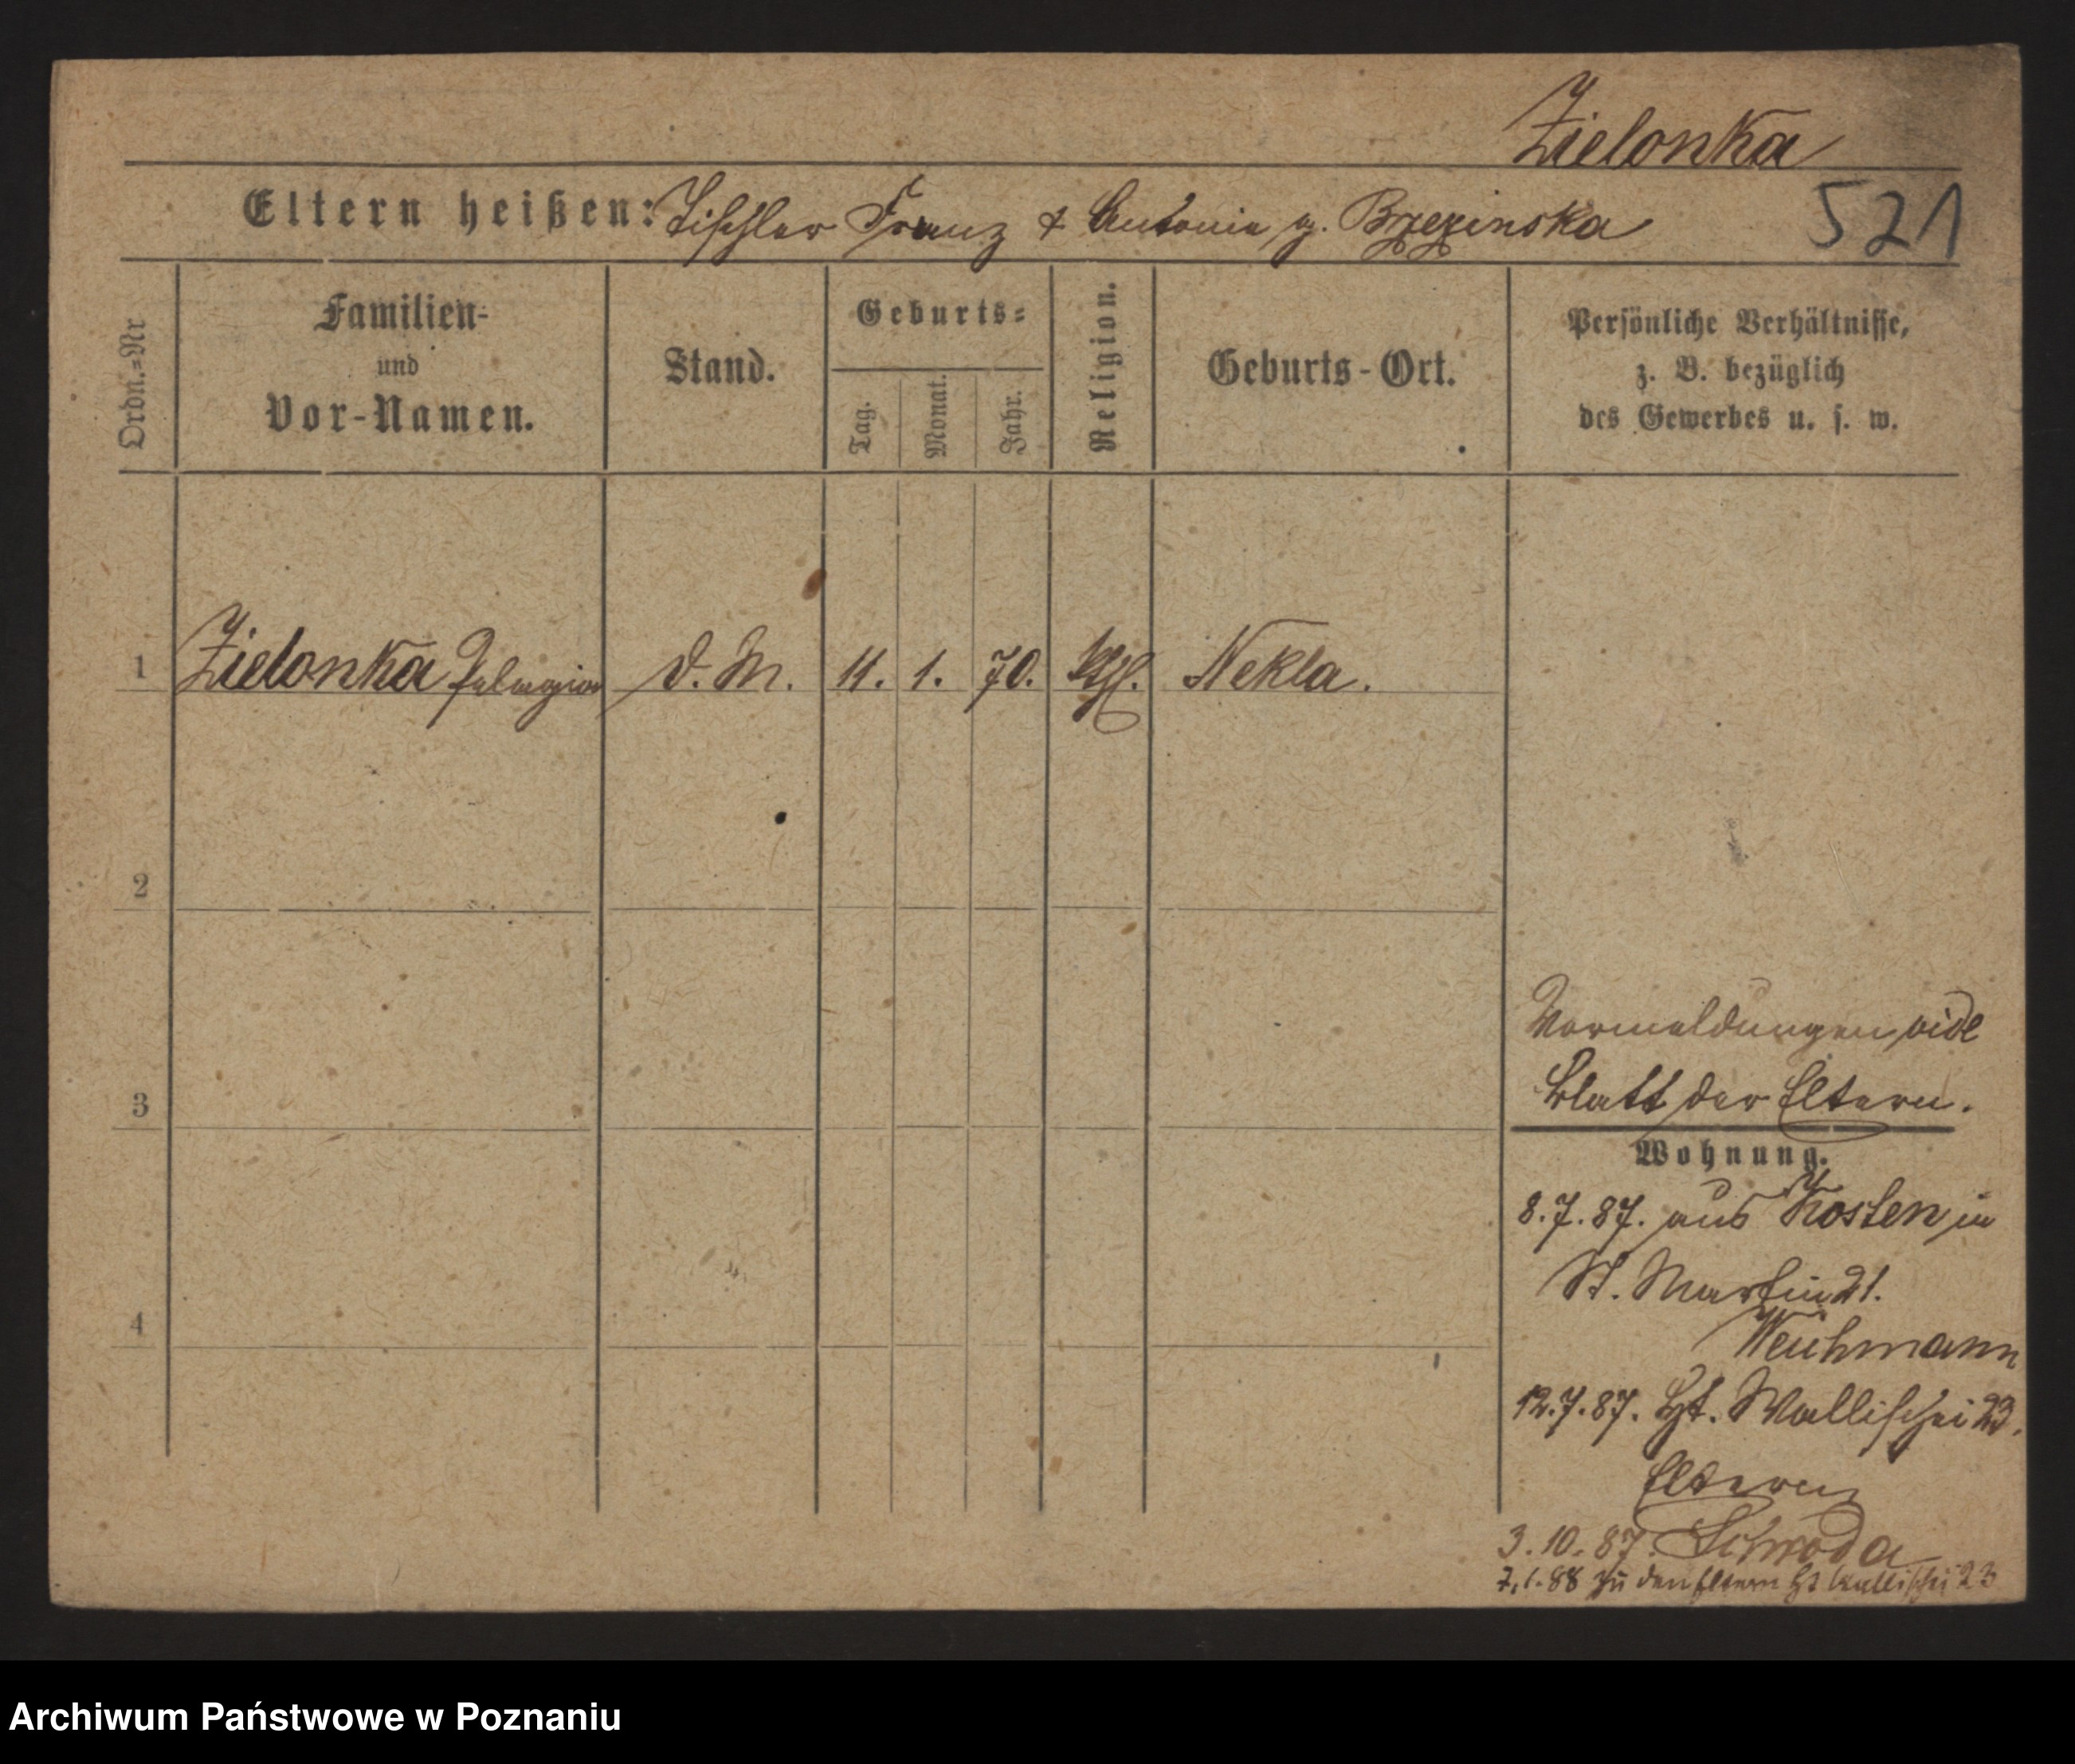 Zielonka
Eltern heißen: Tischler Franz & Antonie g. Brzezinska
521
Ordn.=Nr
Familien-
und
Vor-Namen.
Stand.
Geburts=
Tag.
Monat.
Jahr.
Religion.
Geburts-Ort.
Persönliche Verhältnisse,
z. B. bezüglich
des Gewerbes u. s. w.
1 Zielonka Pelagia D. M. 11. 1. 70. Kthl. Nekla.
2
3
4
Vormeldungen vide
Blatt der Eltern.
Wohnung.
8.7.87. aus Kosten in
St. Martin 21.
Weichmann
12.7.87. Ht. Wallischei 23.
Eltern
3.10.87. Schroda
7.1.88 zu den Eltern Ht Wallischei 23
Archiwum Państwowe w Poznaniu